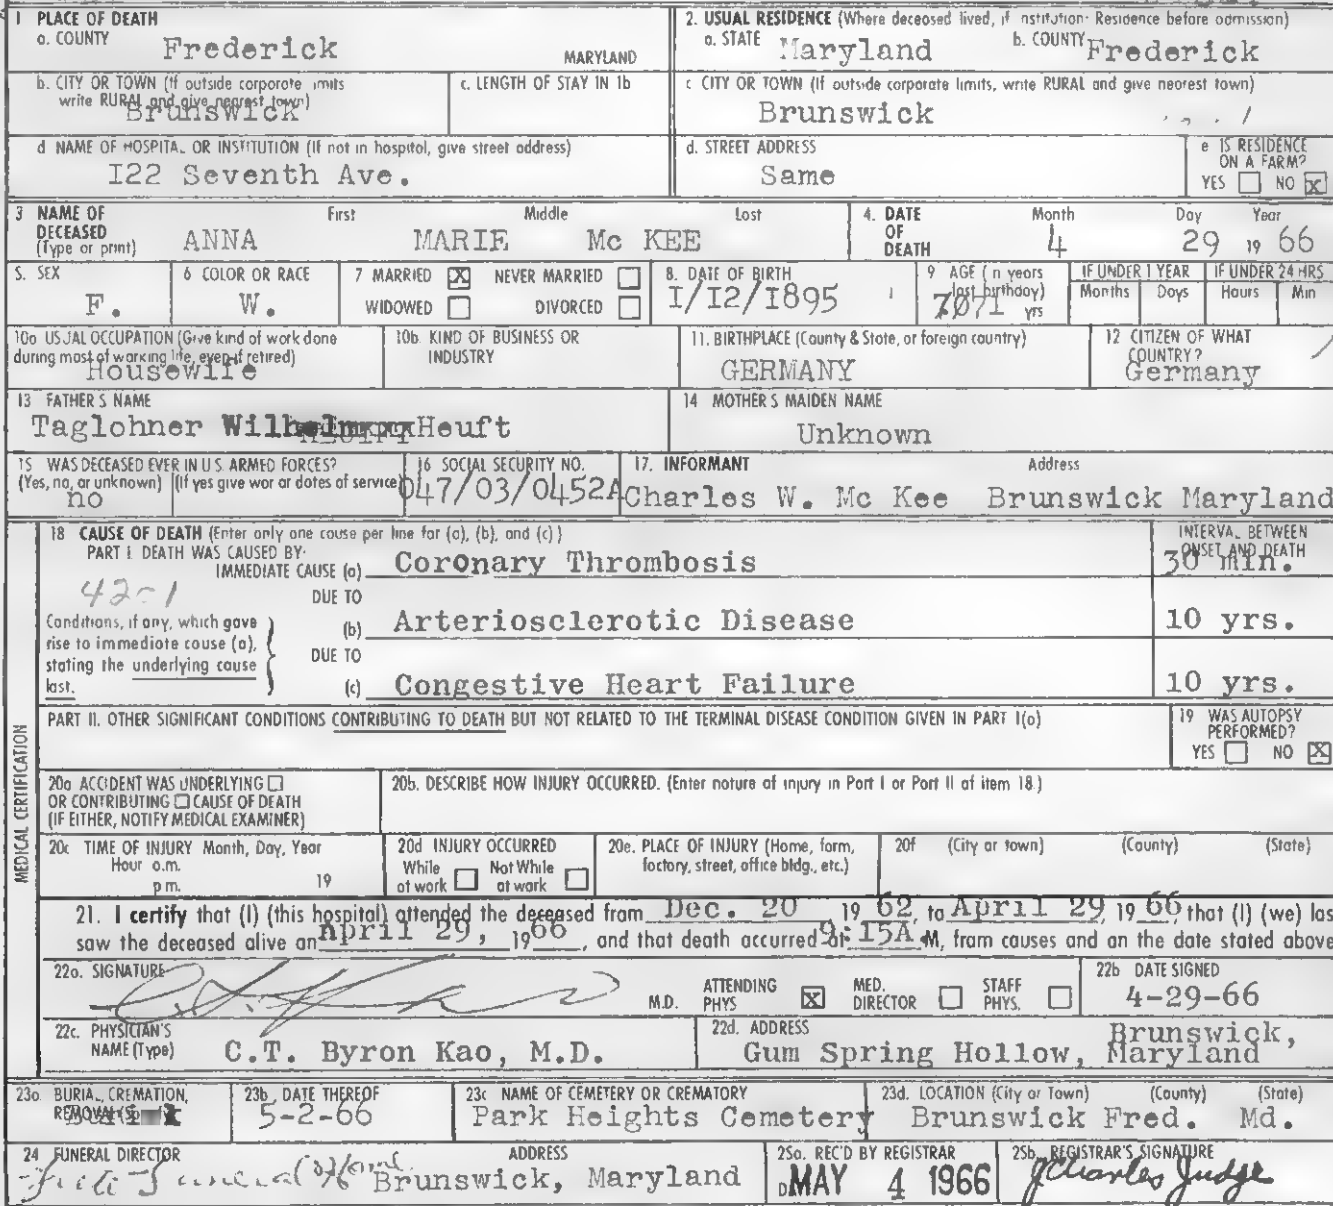 1 PLACE OF DEATH
a. COUNTY Frederick MARYLAND
2. USUAL RESIDENCE (Where deceased lived, if institution: Residence before admission)
a. STATE Maryland b. COUNTY Frederick
b. CITY OR TOWN (If outside corporate limits write RURAL and give nearest town) Brunswick
c. LENGTH OF STAY IN 1b
c CITY OR TOWN (If outside corporate limits, write RURAL and give nearest town)
Brunswick
d NAME OF HOSPITAL OR INSTITUTION (If not in hospital, give street address)
I22 Seventh Ave.
d. STREET ADDRESS
Same
e IS RESIDENCE ON A FARM?
YES NO X
3 NAME OF DECEASED (Type or print)
First Middle Last
ANNA MARIE Mc KEE
4. DATE OF DEATH
Month Day Year
4 29 19 66
5. SEX
F.
6 COLOR OR RACE
W.
7 MARRIED X NEVER MARRIED
WIDOWED DIVORCED
8. DATE OF BIRTH
I/I2/I895
9 AGE (In years last birthday)
71 yrs
IF UNDER 1 YEAR
Months Days
IF UNDER 24 HRS
Hours Min
10a USUAL OCCUPATION (Give kind of work done during most of working life, even if retired)
Housewife
10b. KIND OF BUSINESS OR INDUSTRY
11. BIRTHPLACE (County & State, or foreign country)
GERMANY
12 CITIZEN OF WHAT COUNTRY?
Germany
13 FATHER'S NAME
Taglohner Wilhelm Heuft
14 MOTHER'S MAIDEN NAME
Unknown
15 WAS DECEASED EVER IN U S ARMED FORCES?
(Yes, no, or unknown) (If yes give war or dates of service)
no
16 SOCIAL SECURITY NO.
047/03/0452A
17. INFORMANT Address
Charles W. Mc Kee Brunswick Maryland
MEDICAL CERTIFICATION
18 CAUSE OF DEATH (Enter only one cause per line for (a), (b), and (c))
PART I. DEATH WAS CAUSED BY:
IMMEDIATE CAUSE (a) Coronary Thrombosis
INTERVAL BETWEEN ONSET AND DEATH
30 min.
Conditions, if any, which gave rise to immediate cause (a), stating the underlying cause last.
DUE TO
(b) Arteriosclerotic Disease 10 yrs.
DUE TO
(c) Congestive Heart Failure 10 yrs.
PART II. OTHER SIGNIFICANT CONDITIONS CONTRIBUTING TO DEATH BUT NOT RELATED TO THE TERMINAL DISEASE CONDITION GIVEN IN PART I(a)
19 WAS AUTOPSY PERFORMED?
YES NO X
20a ACCIDENT WAS UNDERLYING
OR CONTRIBUTING CAUSE OF DEATH
(IF EITHER, NOTIFY MEDICAL EXAMINER)
20b. DESCRIBE HOW INJURY OCCURRED. (Enter nature of injury in Part I or Part II of item 18.)
20c TIME OF INJURY Month, Day, Year
Hour a.m.
p m. 19
20d INJURY OCCURRED
While at work Not While at work
20e. PLACE OF INJURY (Home, farm, factory, street, office bldg., etc.)
20f (City or town) (County) (State)
21. I certify that (I) (this hospital) attended the deceased from Dec. 20 19 62, to April 29 19 66, that (I) (we) las
saw the deceased alive on April 29, 1966, and that death occurred at 9:15A M, from causes and on the date stated above
22a. SIGNATURE
M.D. ATTENDING PHYS X MED. DIRECTOR STAFF PHYS.
22b DATE SIGNED
4-29-66
22c. PHYSICIAN'S NAME (Type) C.T. Byron Kao, M.D.
22d. ADDRESS
Gum Spring Hollow, Brunswick, Maryland
23a. BURIAL, CREMATION, REMOVAL
23b. DATE THEREOF
5-2-66
23c NAME OF CEMETERY OR CREMATORY
Park Heights Cemetery
23d. LOCATION (City or Town) (County) (State)
Brunswick Fred. Md.
24 FUNERAL DIRECTOR ADDRESS
Funeral Brunswick, Maryland
25a. REC'D BY REGISTRAR
MAY 4 1966
25b. REGISTRAR'S SIGNATURE
J Charles Judge